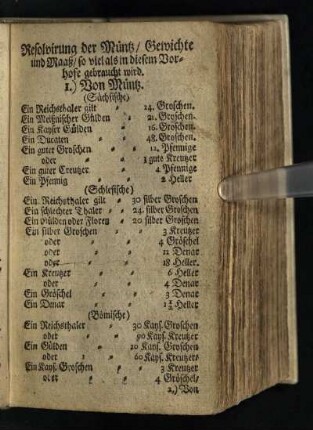 Resolvirung der Müntz/ Gewichte
und Maaß/ so viel als in diesem Vor-
hose gebraucht wird.
1.) Von Müntz.
(Sächsische)
Ein Reichsthaler gilt „ 24. Groschen.
Ein Meißnischer Gülden „ 21. Groschen.
Ein Kayser Gülden „ 16. Groschen.
Ein Ducaten „ „ 48. Groschen.
Ein guter Groschen „ „ 12. Pfennige
oder „ „ 3 gute Kreutzer
Ein guter Creutzer „ „ 4 Pfennige
Ein Pfennig „ „ 2 Heller
(Schlesische)
Ein Reichsthaler gilt „ 30 silber Groschen
Ein schlechter Thaler „ 24. silber Groschen
Ein Gülden oder Floren „ 20 silber Groschen
Ein silber Groschen „ „ 3 Kreutzer
oder „ „ 4 Gröschel
oder „ „ 12 Denar
oder „ „ 18 Heller.
Ein Kreutzer „ „ 6 Heller
oder „ „ 4 Denar
Ein Gröschel „ „ 3 Denar
Ein Denar „ „ 1½ Heller
(Bömische)
Ein Reichsthaler „ 30 Kays. Groschen
oder „ „ 90 Kays. Kreutzer
Ein Gülden „ „ 20 Kays. Groschen
oder „ „ 60 Kays. Kreutzers
Ein Kays. Groschen „ „ 3 Kreutzer
oder „ „ 4 Gröschel/
2.) Von